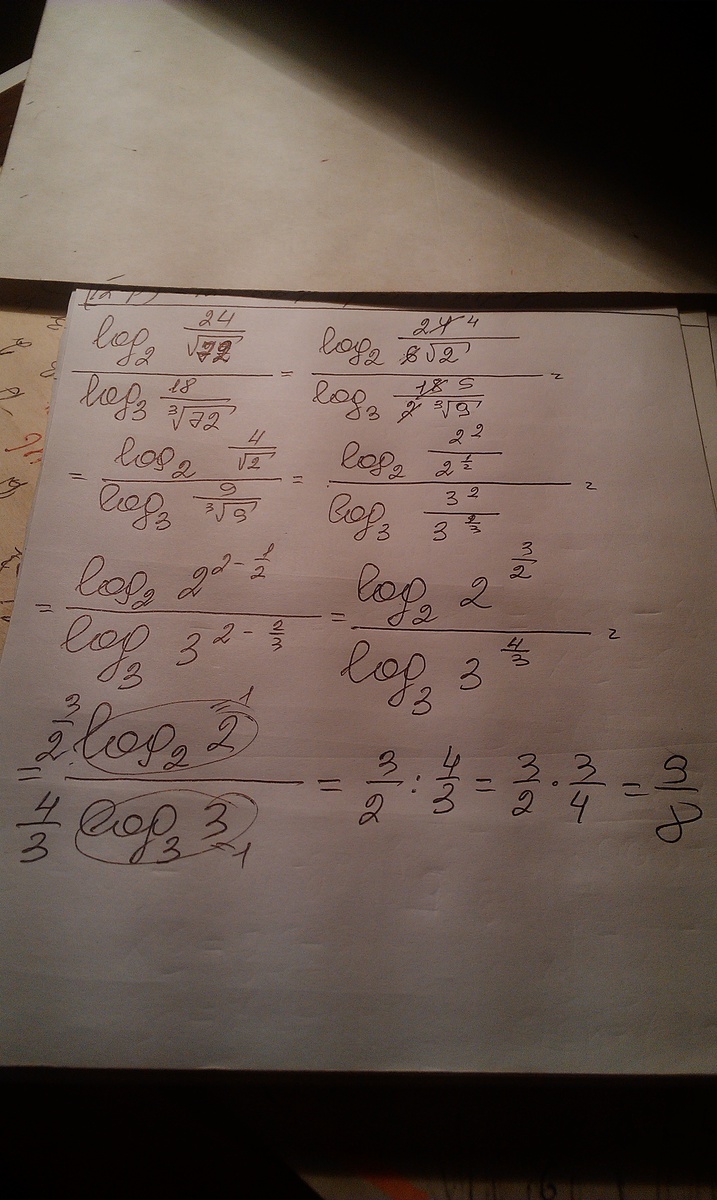 log₂ (24/√72) / log₃ (18/∛72) = log₂ (24 4/6√2) / log₃ (18 9/2∛9) =
= log₂ (4/√2) / log₃ (9/∛9) = log₂ (2²/2^(1/2)) / log₃ (3²/3^(2/3)) =
= log₂ 2^(2 - 1/2) / log₃ 3^(2 - 2/3) = log₂ 2^(3/2) / log₃ 3^(4/3) =
= 3/2 · log₂ 2 =1 / 4/3 log₃ 3 =1 = 3/2 : 4/3 = 3/2 · 3/4 = 9/8